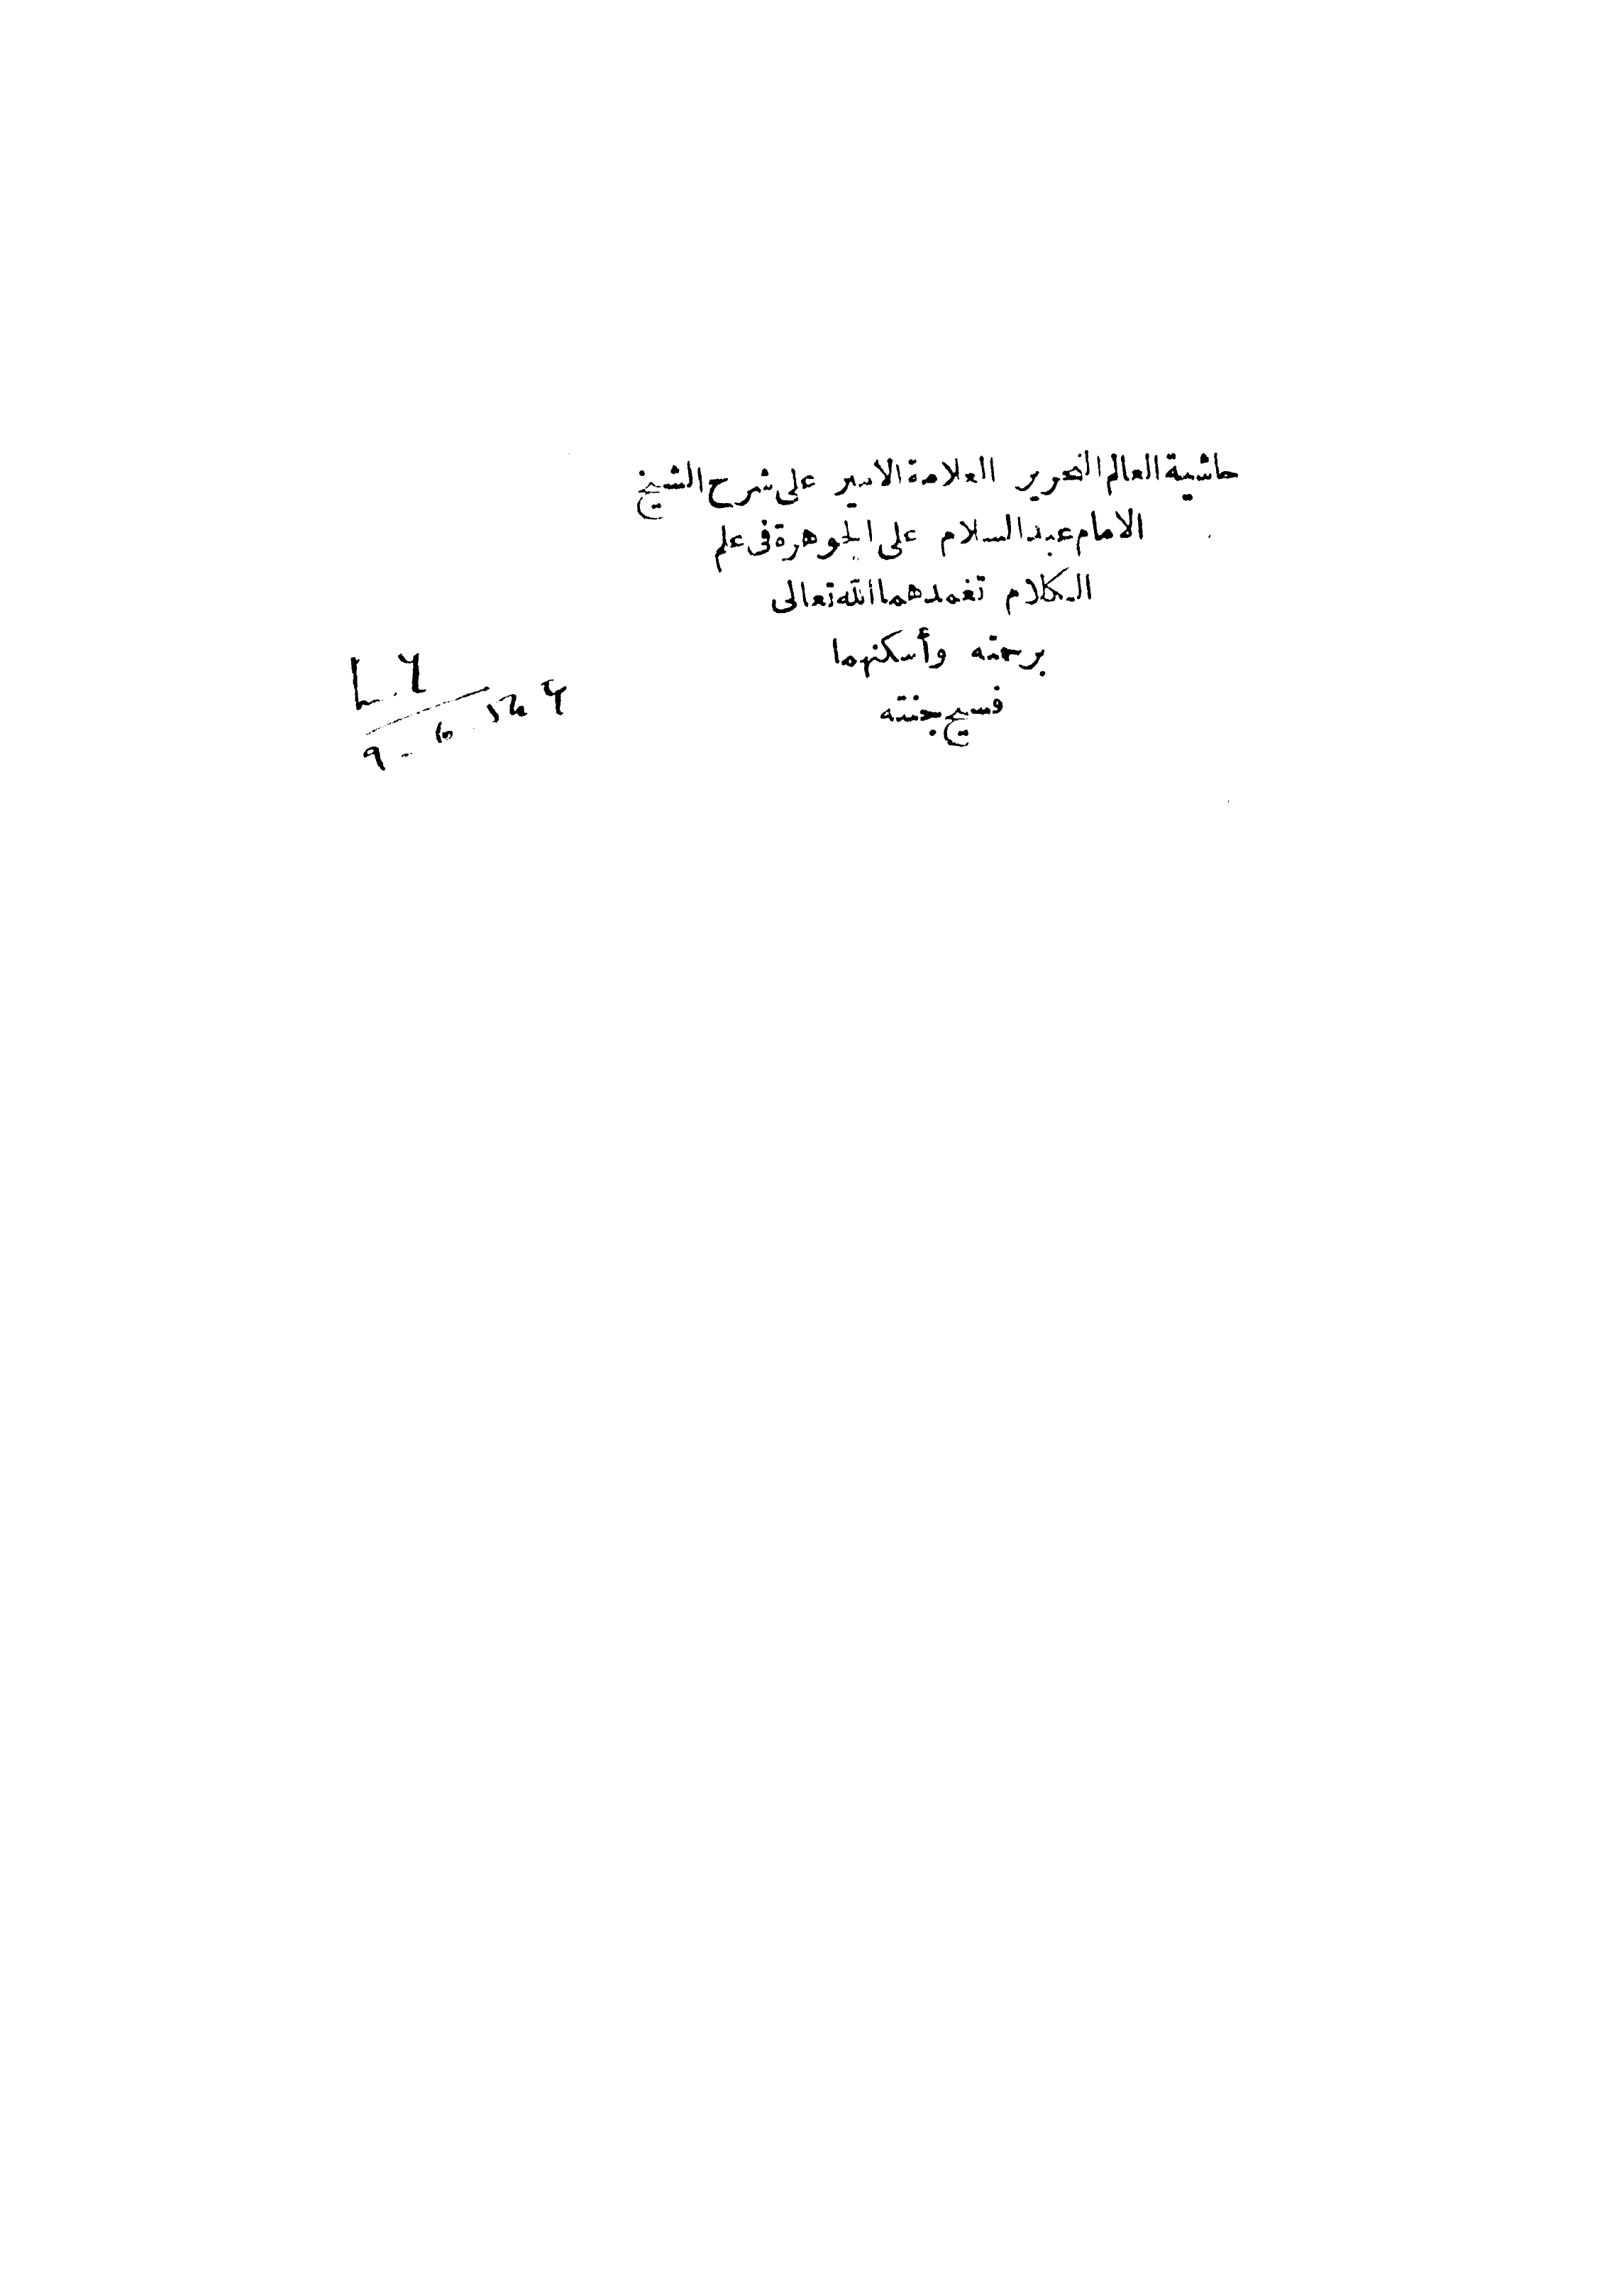 حاشية العالم النحرير العلامة الامير على شرح الشيخ
الامام عبد السلام على الجوهرة فى علم
الكلام تغمدهما الله تعالى
برحمته وأسكنهما
فسيح جنته